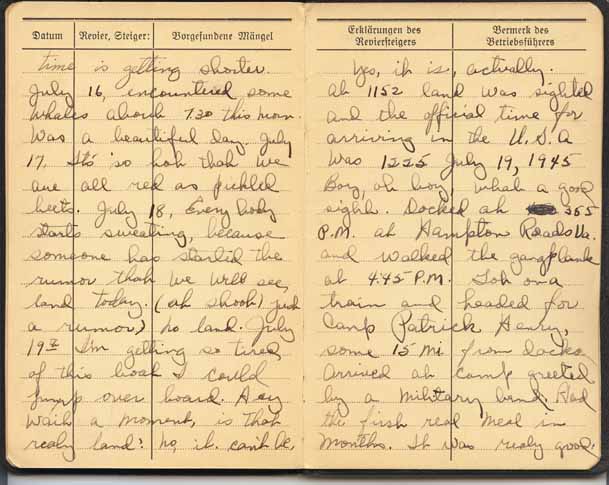 Datum Revier, Steiger: Vorgefundene Mängel
time is getting shorter.
July 16, encountered some
whales about 730 this morn.
Was a beautiful day. July
17. It's so hot that we
are all red as pickled
beets. July 18, Every body
starts sweating, because
someone has started the
rumor that we will see
land today. (ah shoot) just
a rumor,) no land. July
19th I'm getting so tired
of this boat I could
jump over board. Hey
wait a moment, is that
realy land? No, it can't be,
Erklärungen des Reviersteigers Vermerk des Betriebsführers
Yes, it is, actually.
at 1152 land was sighted
and the official time for
arriving in the U.S.A
was 1225 July 19, 1945
Boy, oh boy, what a good
sight. Docked at 355
P.M. at Hampton Roads Va.
and walked the gangplank
at 4:45 P.M. Got on a
train and headed for
Camp Patrick Henry,
some 15 mi. from docks.
Arrived at camp greeted
by a military band. Had
the first real meal in
months. It was realy good.